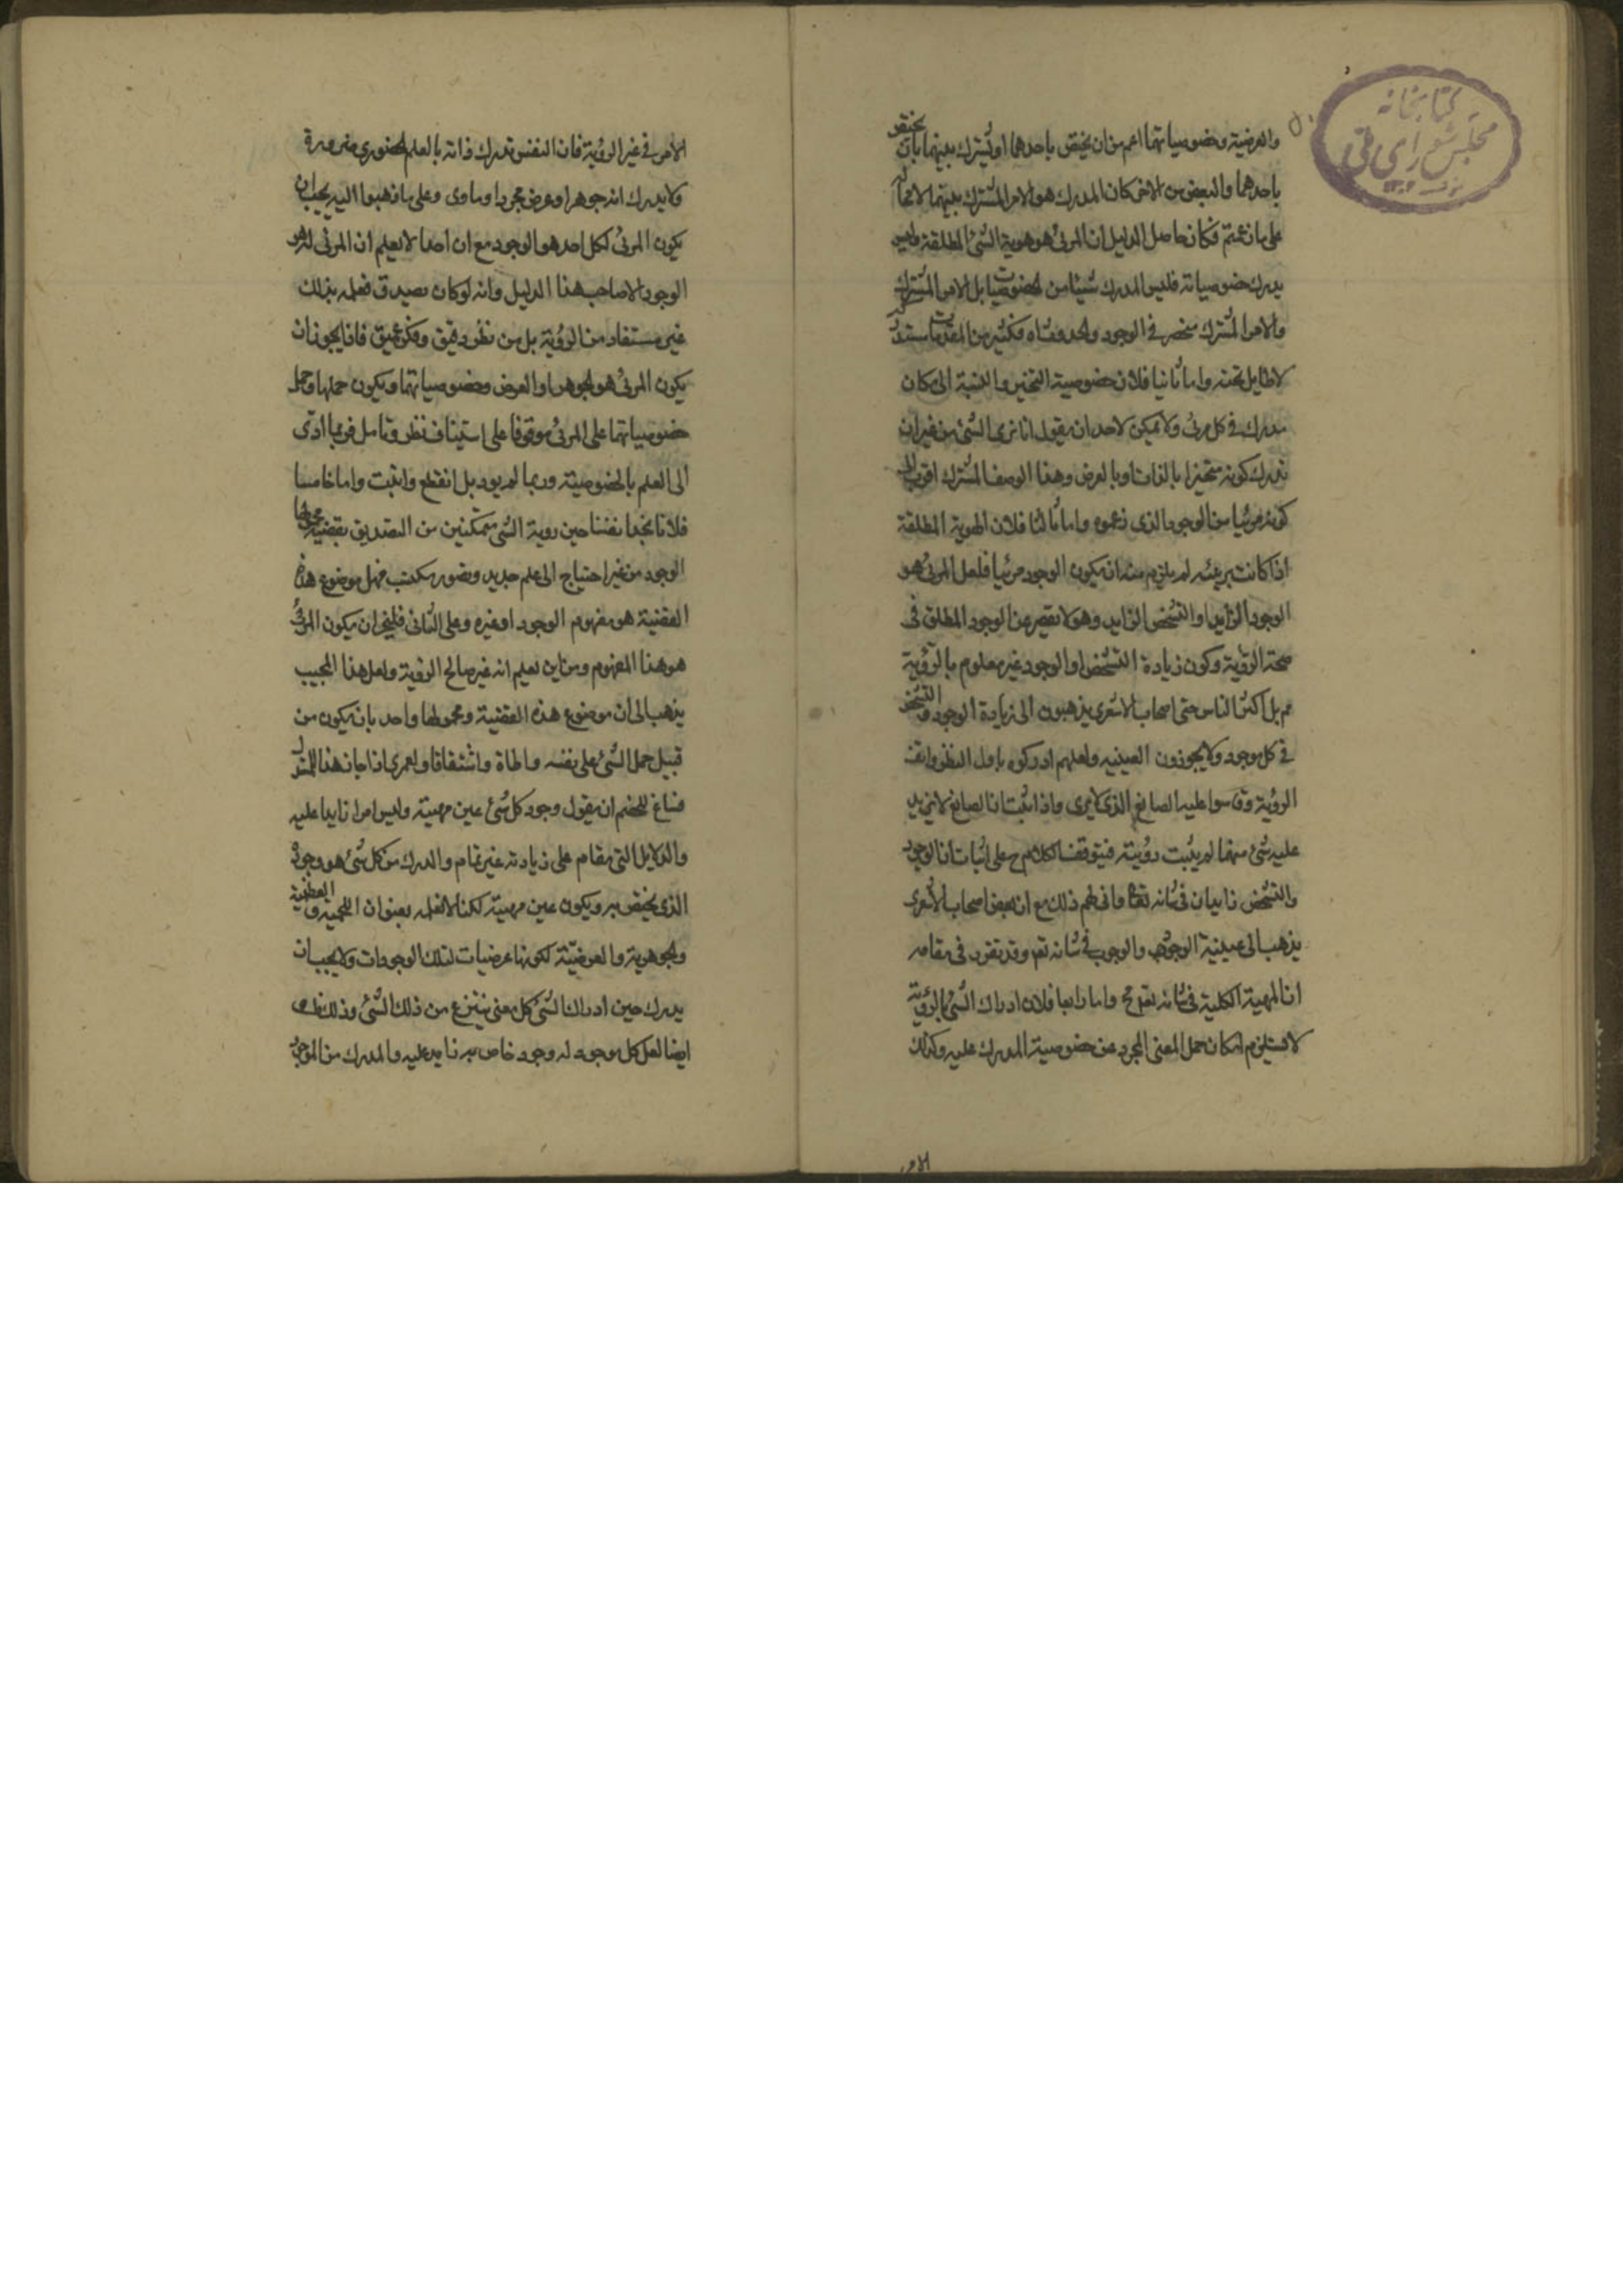 كتابخانه
مجلس شورای ملی
والعرضية وخصوصياتهما اعم من ان يختص باحدهما او يشترك بينهما بان يختص
باحدهما والبعض من الاخر كان المدرك هو الامر المشترك بينهما لا محالة
على ما زعمتم فكان حاصل الدليل ان المرئ هو هوية الشئ المطلقة وليس
يدرك خصوصياته فليس المدرك شيئا من الخصوصيات بل الامر المشترك
والامر المشترك منحصر في الوجود والحدوث اه فكثير من المقدمات مستدرك
لا طايل تحته واما ثانيا فلان خصوصية التحيز والنسبة الى مكان
مدرك في كل مرئ ولا يمكن لاحد ان يقول انا نرى الشئ من غير ان
ندرك كونه متحيزا بالذات او بالعرض وهذا الوصف المشترك اقرب الى
كونه مرئيا من الوجود الذى زعموه واما ثالثا فلان الهوية المطلقة
اذا كانت مرئية لم يلزم منه ان يكون الوجود مرئيا فلعل المرئ هو
الوجود الزايد او التشخص الزايد وهو لا يقصر عن الوجود المطلق فى
صحة الرؤية وكون زيادة التشخص او الوجود غير معلوم بالرؤية
عم بل اكثر الناس حتى اصحاب الاشعرى يذهبون الى زيادة الوجود والتشخص
في كل موجود ولا يجوزون العينية ولعلهم ادركوه باول النظر وانفذ
الرؤية وقاسوا عليه الصانع الذى لا يرى واذا اثبت ان الصانع لا يزيد
عليه شئ منهما لم يثبت رؤيته فيتوقف الكلام ح على اثبات ان الوجود
والتشخص زايدان فى شانه تعالى وانى لهم ذلك مع ان بعض اصحاب الاشعرى
يذهب الى عينية الوجود والوجوب فى شانه تعم وقد تقرر فى مقامه
ان المهية الكلية فى شانه تعم مح واما رابعا فلان ادراك الشئ بالرؤية
لا يستلزم امكان حمل المعنى المجرد عن خصوصية المدرك عليه وكذلك
الامر
الامر في غير الرؤية فان النفس تدرك ذاته بالعلم الحضورى ضرورة
ولا يدرك انه جوهر او عرض مجرد او مادى وعلى ما ذهبوا اليه يجب ان
يكون المرئ لكل احد هو الوجود مع ان احدا لا يعلم ان المرئى له هو
الوجود الا صاحب هذا الدليل وانه لو كان يصدق فعلمه بذلك
غير مستفاد من الرؤية بل من نظر دقيق وفكر عميق فانا يجوز ان
يكون المرئ هو الجوهر او العرض وخصوصياتهما ويكون حملها وحمل
خصوصياتهما على المرئ موقوفا على استيناف نظر وتامل فربما ادى
الى العلم بالخصوصية وربما لم يود بل انقطع وانبت واما خامسا
فلانا نجد انفسنا حين روية الشئ متمكنين من التصديق بقضية محمولها
الوجود من غير احتياج الى علم جديد وتصور مكتسب فهل موضوع هذه
القضية هو مفهوم الوجود او غيره وعلى الثانى فليجز ان يكون المرئ
هو هذا المفهوم ومن اين نعلم انه غير صالح الرؤية ولعل هذا المجيب
يذهب الى ان موضوع هذه القضية ومحمولها واحد بان يكون من
قبيل حمل الشئ على نفسه مواطاة واشتقاقا ولعمرى اذا جاز هذا للمستدل
فساغ للخصم ان يقول وجود كل شئ عين مهيته وليس امرا زايدا عليه
والدلايل التى تقام على زيادته غير تمام والمدرك من كل شئ هو وجوده
الذى يختص به ويكون عين مهيته لكنا لا نعلمه بعنوان اللحمية والعظمية
والجوهرية والعرضية لكونها عرضيات لتلك الوجودات ولا يجب ان
يدرك حين ادراك الشئ كل معنى ينتزع من ذلك الشئ وذلك ظاهر
ايضا لعل كل موجود له وجود خاص به زايد عليه والمدرك من الموجود